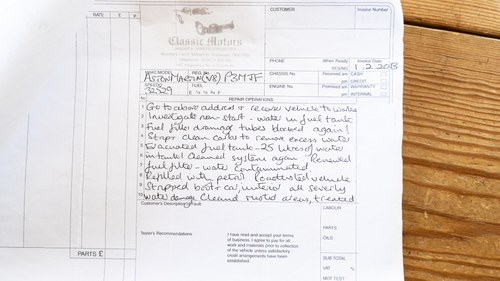 DATE £ P
CUSTOMER
Invoice Number
Classic Motors
PHONE
When Ready
Invoice Date
PHONE
1.2.2013
MAKE/MODEL
REG. No.
CHASSIS No.
Received am CASH
ASTON MARTIN (V8) P3MJF
pm CREDIT
SPEEDO
FUEL
ENGINE No.
Promised am WARRANTY
32529
E ¼ ½ ¾ F
pm INTERNAL
REPAIR OPERATIONS
1 Go to above address & recover vehicle to works
2 Investigate non-start - water in fuel tank
3 Fuel filler drainage tubes blocked again!
4 Strip & clean carbs to remove excess water
5 Evacuated fuel tank - 25 litres of water
6 in tank! Cleaned system again Renewed
7 fuel filter - water contaminated.
8 Refilled with petrol. Roadtested vehicle
9 Stripped boot & car interior all severly
10 water damage. Cleaned rusted areas, treated
Customer's Description of Fault
LABOUR
I have read and accept your terms
of business. I agree to pay for all
work and materials prior to collection
of the vehicle unless satisfactory
credit arrangements have been
established.
Recommendations
PARTS
OILS
SUB TOTAL
VAT %
MOT TEST
PARTS £